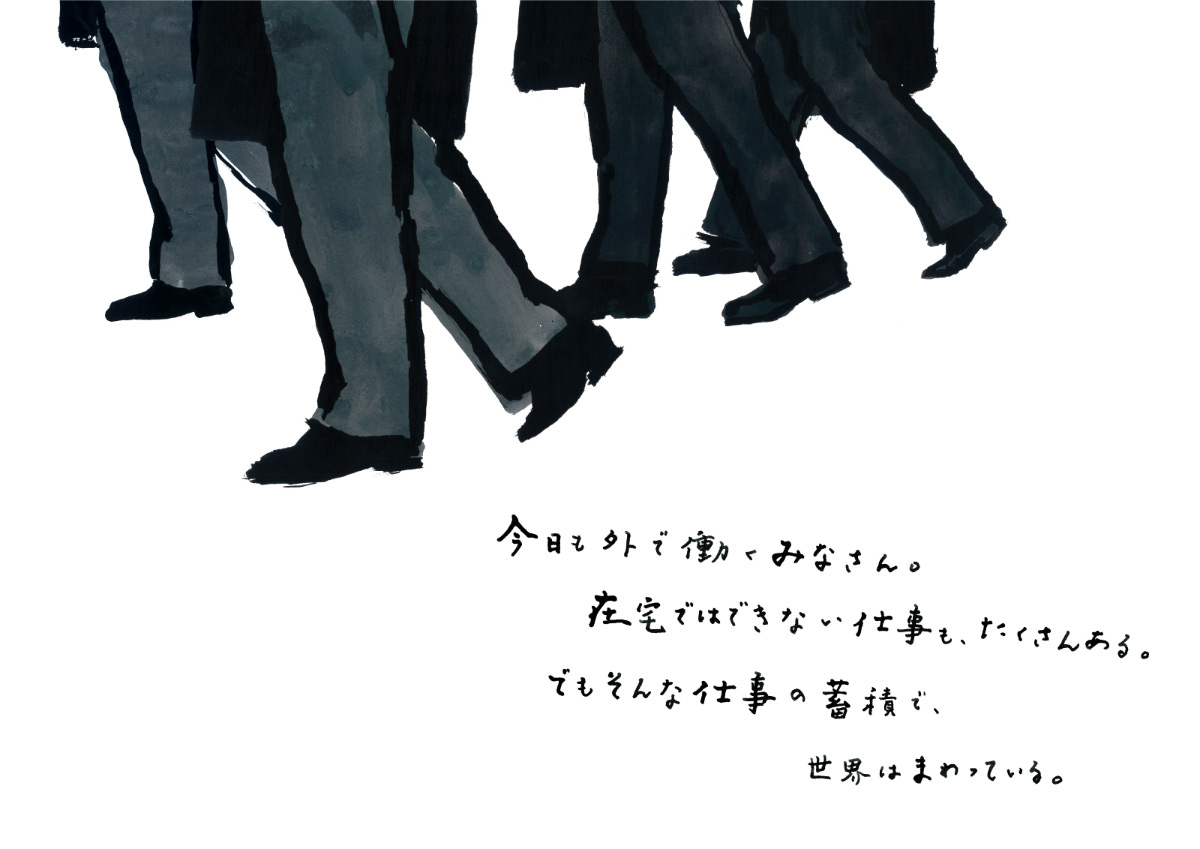 今日も外で働くみなさん。
在宅ではできない仕事も、たくさんある。
でもそんな仕事の蓄積で、
世界はまわっている。